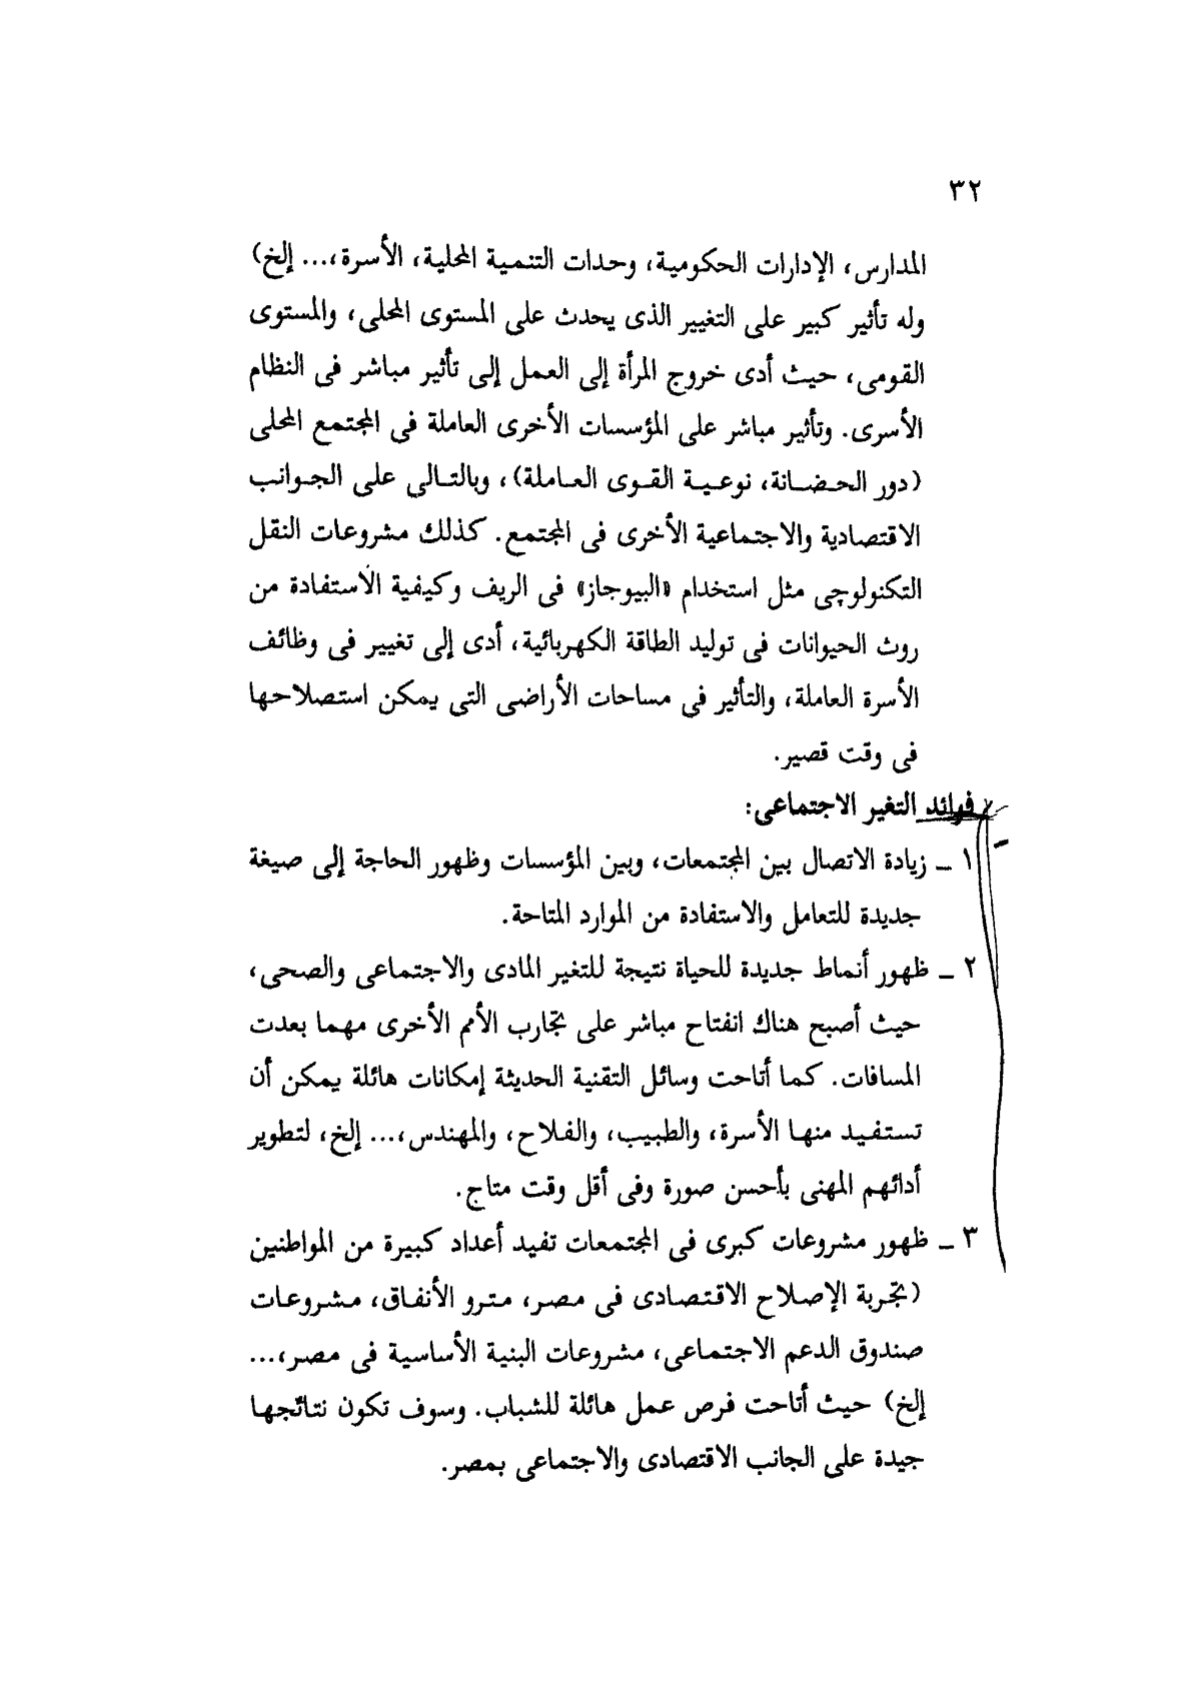 ٣٢
المدارس، الإدارات الحكومية، وحدات التنمية المحلية، الأسرة،... إلخ)
وله تأثير كبير على التغيير الذى يحدث على المستوى المحلى، والمستوى
القومى، حيث أدى خروج المرأة إلى العمل إلى تأثير مباشر فى النظام
الأسرى. وتأثير مباشر على المؤسسات الأخرى العاملة فى المجتمع المحلى
(دور الحضانة، نوعية القوى العاملة)، وبالتالى على الجوانب
الاقتصادية والاجتماعية الأخرى فى المجتمع. كذلك مشروعات النقل
التكنولوچى مثل استخدام «البيوجاز» فى الريف وكيفية الاستفادة من
روث الحيوانات فى توليد الطاقة الكهربائية، أدى إلى تغيير فى وظائف
الأسرة العاملة، والتأثير فى مساحات الأراضى التى يمكن استصلاحها
فى وقت قصير.
فوائد التغير الاجتماعى:
١ ــ زيادة الاتصال بين المجتمعات، وبين المؤسسات وظهور الحاجة إلى صيغة
جديدة للتعامل والاستفادة من الموارد المتاحة.
٢ ــ ظهور أنماط جديدة للحياة نتيجة للتغير المادى والاجتماعى والصحى،
حيث أصبح هناك انفتاح مباشر على تجارب الأمم الأخرى مهما بعدت
المسافات. كما أتاحت وسائل التقنية الحديثة إمكانات هائلة يمكن أن
تستفيد منها الأسرة، والطبيب، والفلاح، والمهندس،... إلخ، لتطوير
أدائهم المهنى بأحسن صورة وفى أقل وقت متاح.
٣ ــ ظهور مشروعات كبرى فى المجتمعات تفيد أعداد كبيرة من المواطنين
(تجربة الإصلاح الاقتصادى فى مصر، مترو الأنفاق، مشروعات
صندوق الدعم الاجتماعى، مشروعات البنية الأساسية فى مصر،...
إلخ) حيث أتاحت فرص عمل هائلة للشباب. وسوف تكون نتائجها
جيدة على الجانب الاقتصادى والاجتماعى بمصر.